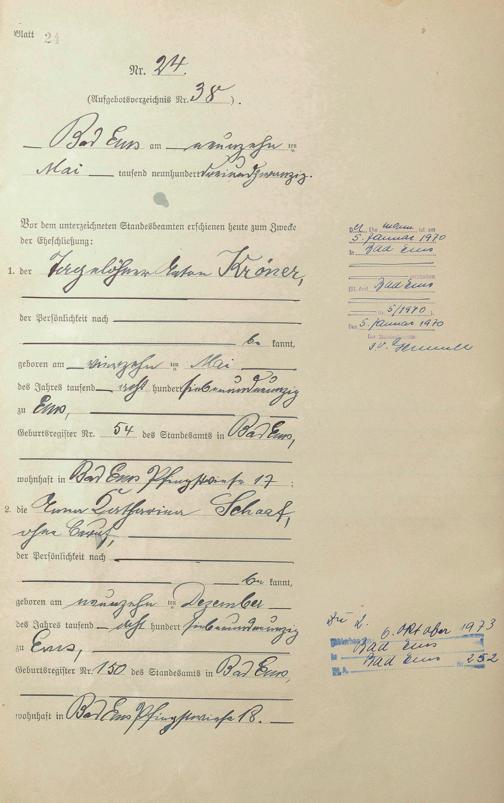 Blatt 24
Nr. 24.
(Aufgebotsverzeichnis Nr. 38).
Bad Ems am neunzehn ten
Mai tausend neunhundert dreiundzwanzig.
Vor dem unterzeichneten Standesbeamten erschienen heute zum Zwecke
der Eheschließung:
1. der Tagelöhner Anton Kröner,
der Persönlichkeit nach
be kannt,
geboren am vierzehn ten Mai
des Jahres tausend acht hundert siebenundneunzig
zu Ems,
Geburtsregister Nr. 54 des Standesamts in Bad Ems,
wohnhaft in Bad Ems Pfingstwiese 17;
2. die Anna Katharina Schaaf,
ohne Beruf,
der Persönlichkeit nach
be kannt,
geboren am neunzehn ten Dezember
des Jahres tausend acht hundert siebenundneunzig
zu Ems,
Geburtsregister Nr. 150 des Standesamts in Bad Ems,
wohnhaft in Bad Ems Pfingstwiese 18.
Mann ist am
5. Januar 1970
in Bad Ems
Bad Ems
5/1970
5. Januar 1970
Zu 2.
6. Oktober 1973
Bad Ems
Bad Ems Nr. 252